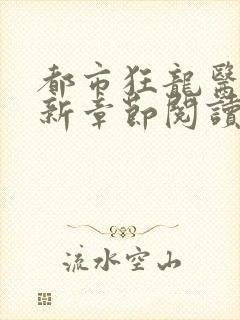 都市狂龍醫
新章節閱讀
流水空山